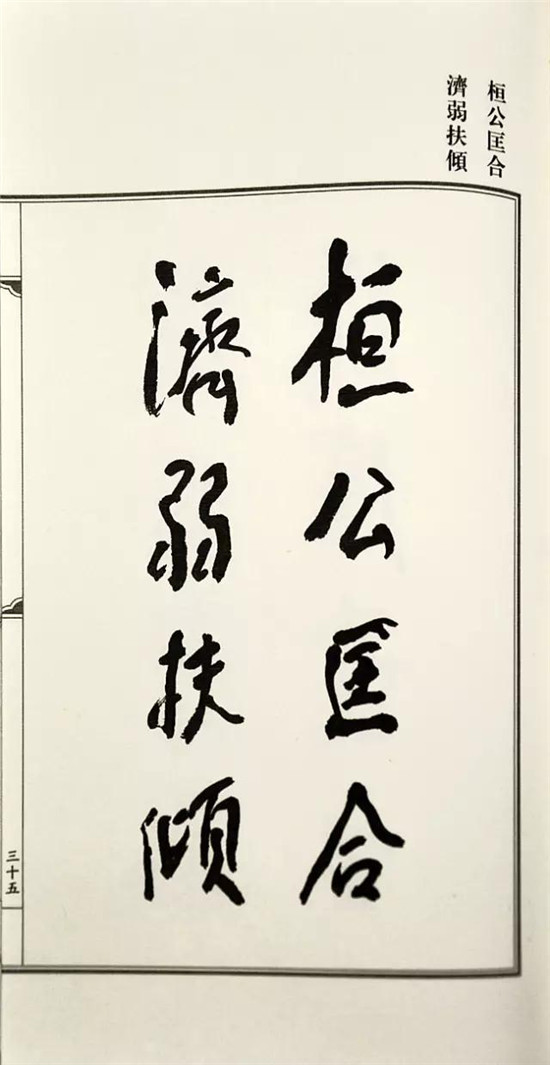 桓公匡合
濟弱扶傾
桓公匡合
濟弱扶傾
三十五